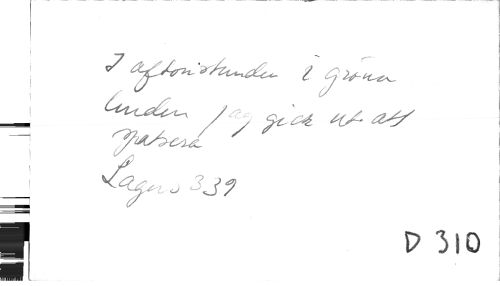 I aftonstunden i gröna
lunden jag gick ut att
spatsera
Lagus 339
D 310